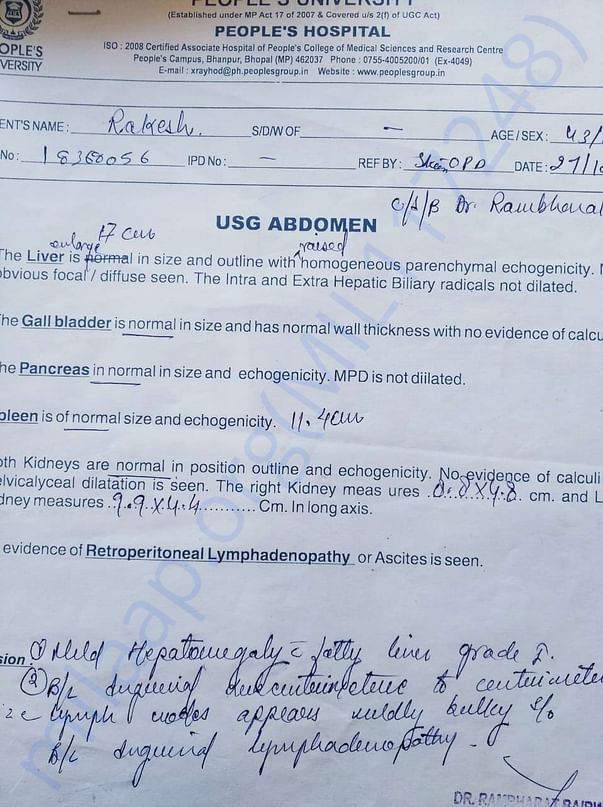 PEOPLE'S UNIVERSITY
(Established under MP Act 17 of 2007 & Covered u/s 2(f) of UGC Act)
PEOPLE'S HOSPITAL
OPLE'S
VERSITY
ISO : 2008 Certified Associate Hospital of People's College of Medical Sciences and Research Centre
People's Campus, Bhanpur, Bhopal (MP) 462037 Phone : 0755-4005200/01 (Ex-4049)
E-mail : xrayhod@ph.peoplesgroup.in Website : www.peoplesgroup.in
ENT'S NAME : Rakesh. S/D/W OF — AGE / SEX : 43/
No : 18360056 IPD No : — REF BY : Skin OPD DATE : 27/1
c/s/B Dr. Rambharat
USG ABDOMEN
enlarge 17 cm raised
The Liver is normal in size and outline with homogeneous parenchymal echogenicity. N
obvious focal / diffuse seen. The Intra and Extra Hepatic Biliary radicals not dilated.
The Gall bladder is normal in size and has normal wall thickness with no evidence of calcu
he Pancreas in normal in size and echogenicity. MPD is not diilated.
pleen is of normal size and echogenicity. 11.4 cm
oth Kidneys are normal in position outline and echogenicity. No evidence of calculi
elvicalyceal dilatation is seen. The right Kidney meas ures cm. and L
dney measures 9.9 X 4.4 Cm. In long axis.
evidence of Retroperitoneal Lymphadenopathy or Ascites is seen.
sion ① Mild Hepatomegaly c̄ fatty liver grade I.
② B/L Inguinal subcentimeteric to centimeter
size lymph nodes appears mildly bulky s/o
B/L Inguinal lymphadenopathy -
DR. RAMBHARAT
milaap.org(MIL117248)